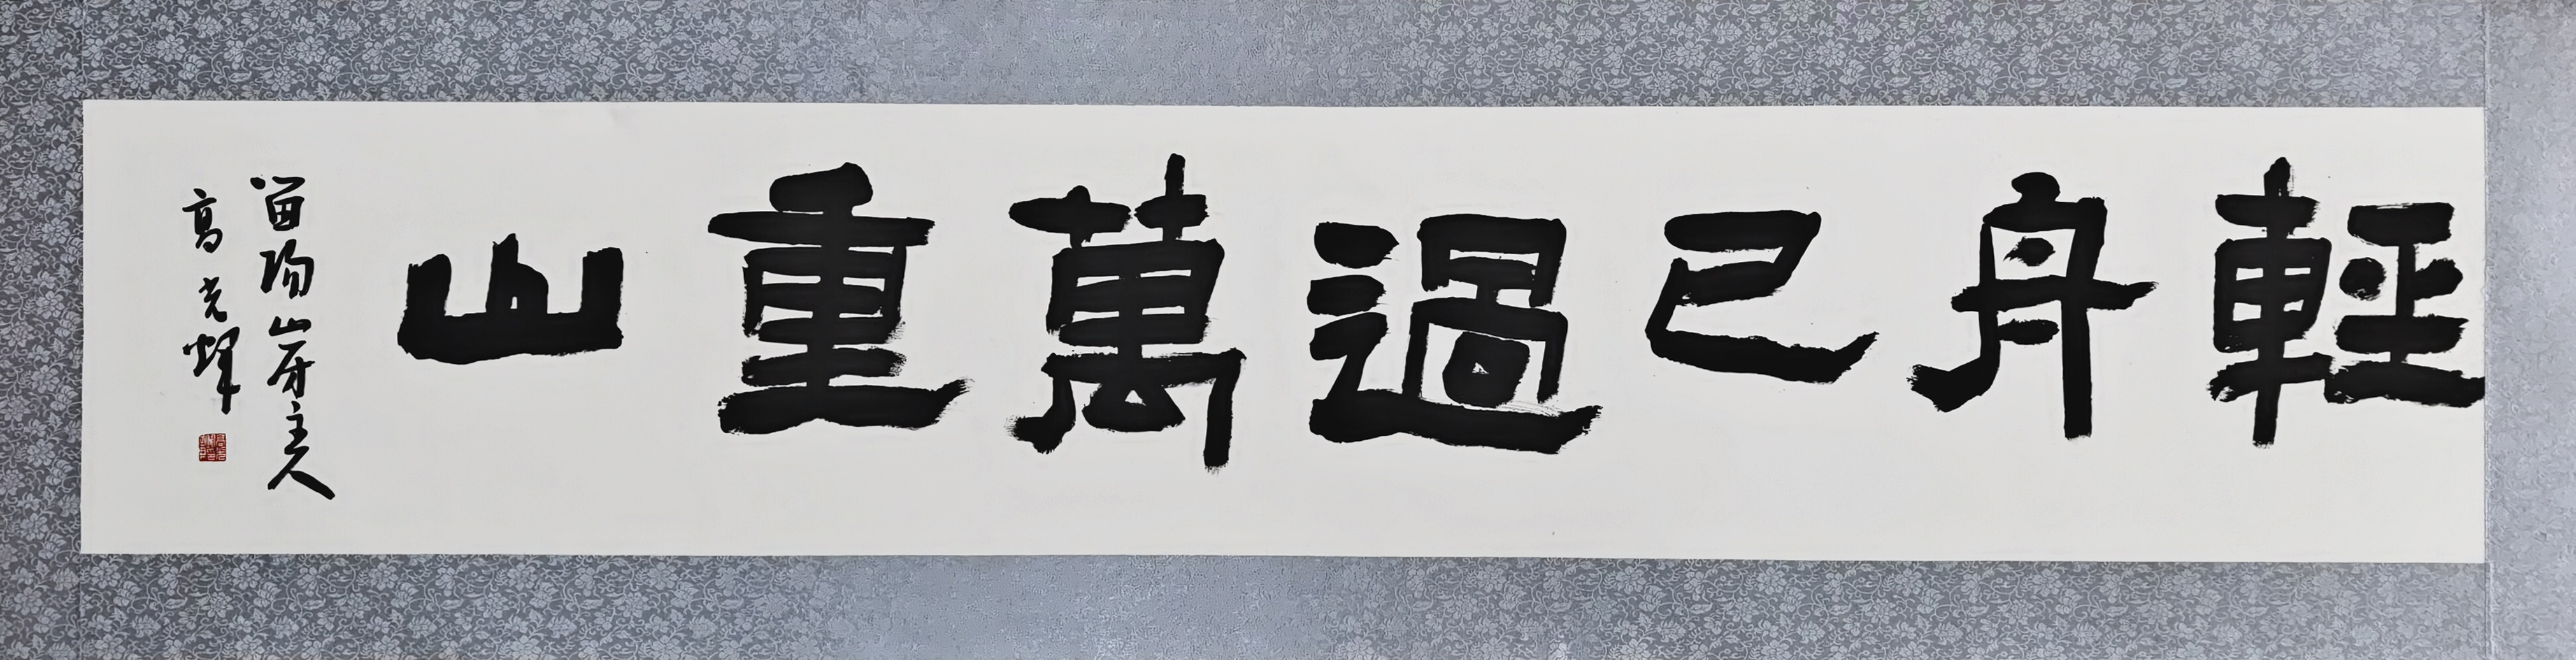 輕舟已過萬重山
留陽山房主人
高光輝